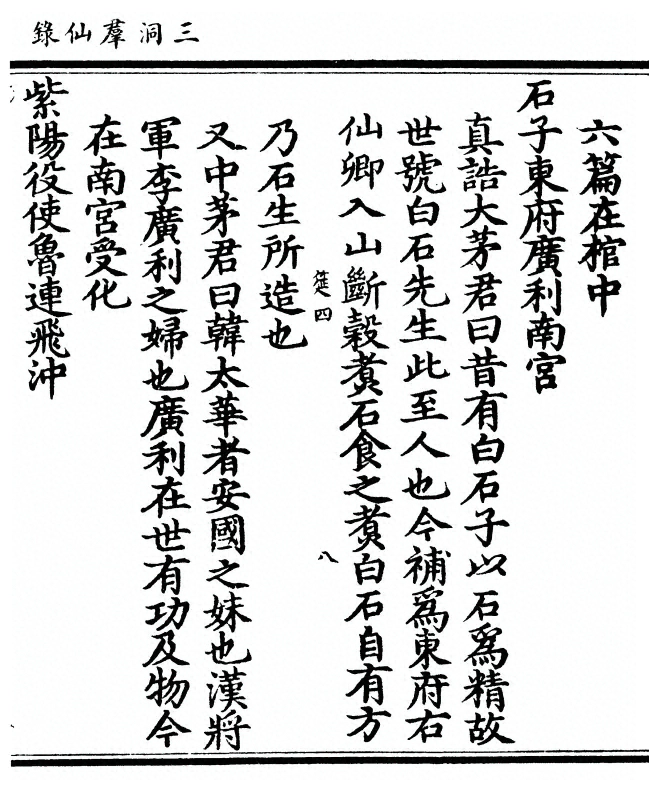 三洞羣仙錄
六篇在棺中
石子東府廣利南宮
真誥大茅君曰昔有白石子以石爲精故
世號白石先生此至人也今補爲東府右
仙卿入山斷穀煑石食之煑白石自有方
筵四
八
乃石生所造也
又中茅君曰韓太華者安國之妹也漢將
軍李廣利之婦也廣利在世有功及物今
在南宮受化
紫陽役使魯連飛沖